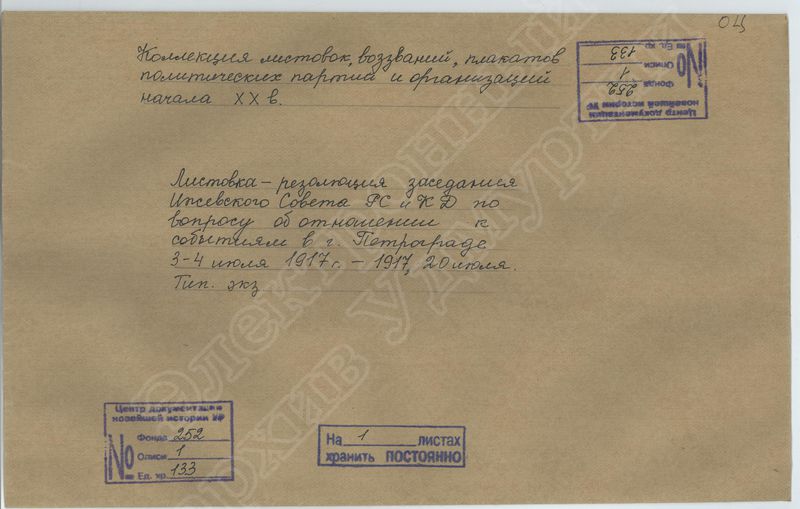 ОЦ
Коллекция листовок, воззваний, плакатов
политических партий и организаций
начала XX в.
Центр документации
новейшей истории УР
Фонда 252
№ Описи 1
Ед. хр. 133
Листовка – резолюция заседания
Ижевского Совета РС и КД по
вопросу об отношении к
событиям в г. Петрограде
3-4 июля 1917 г. – 1917, 20 июля.
Тип. экз
Электронный
архив Удмуртии
Центр документации
новейшей истории УР
Фонда 252
№ Описи 1
Ед. хр. 133
На 1 листах
хранить ПОСТОЯННО